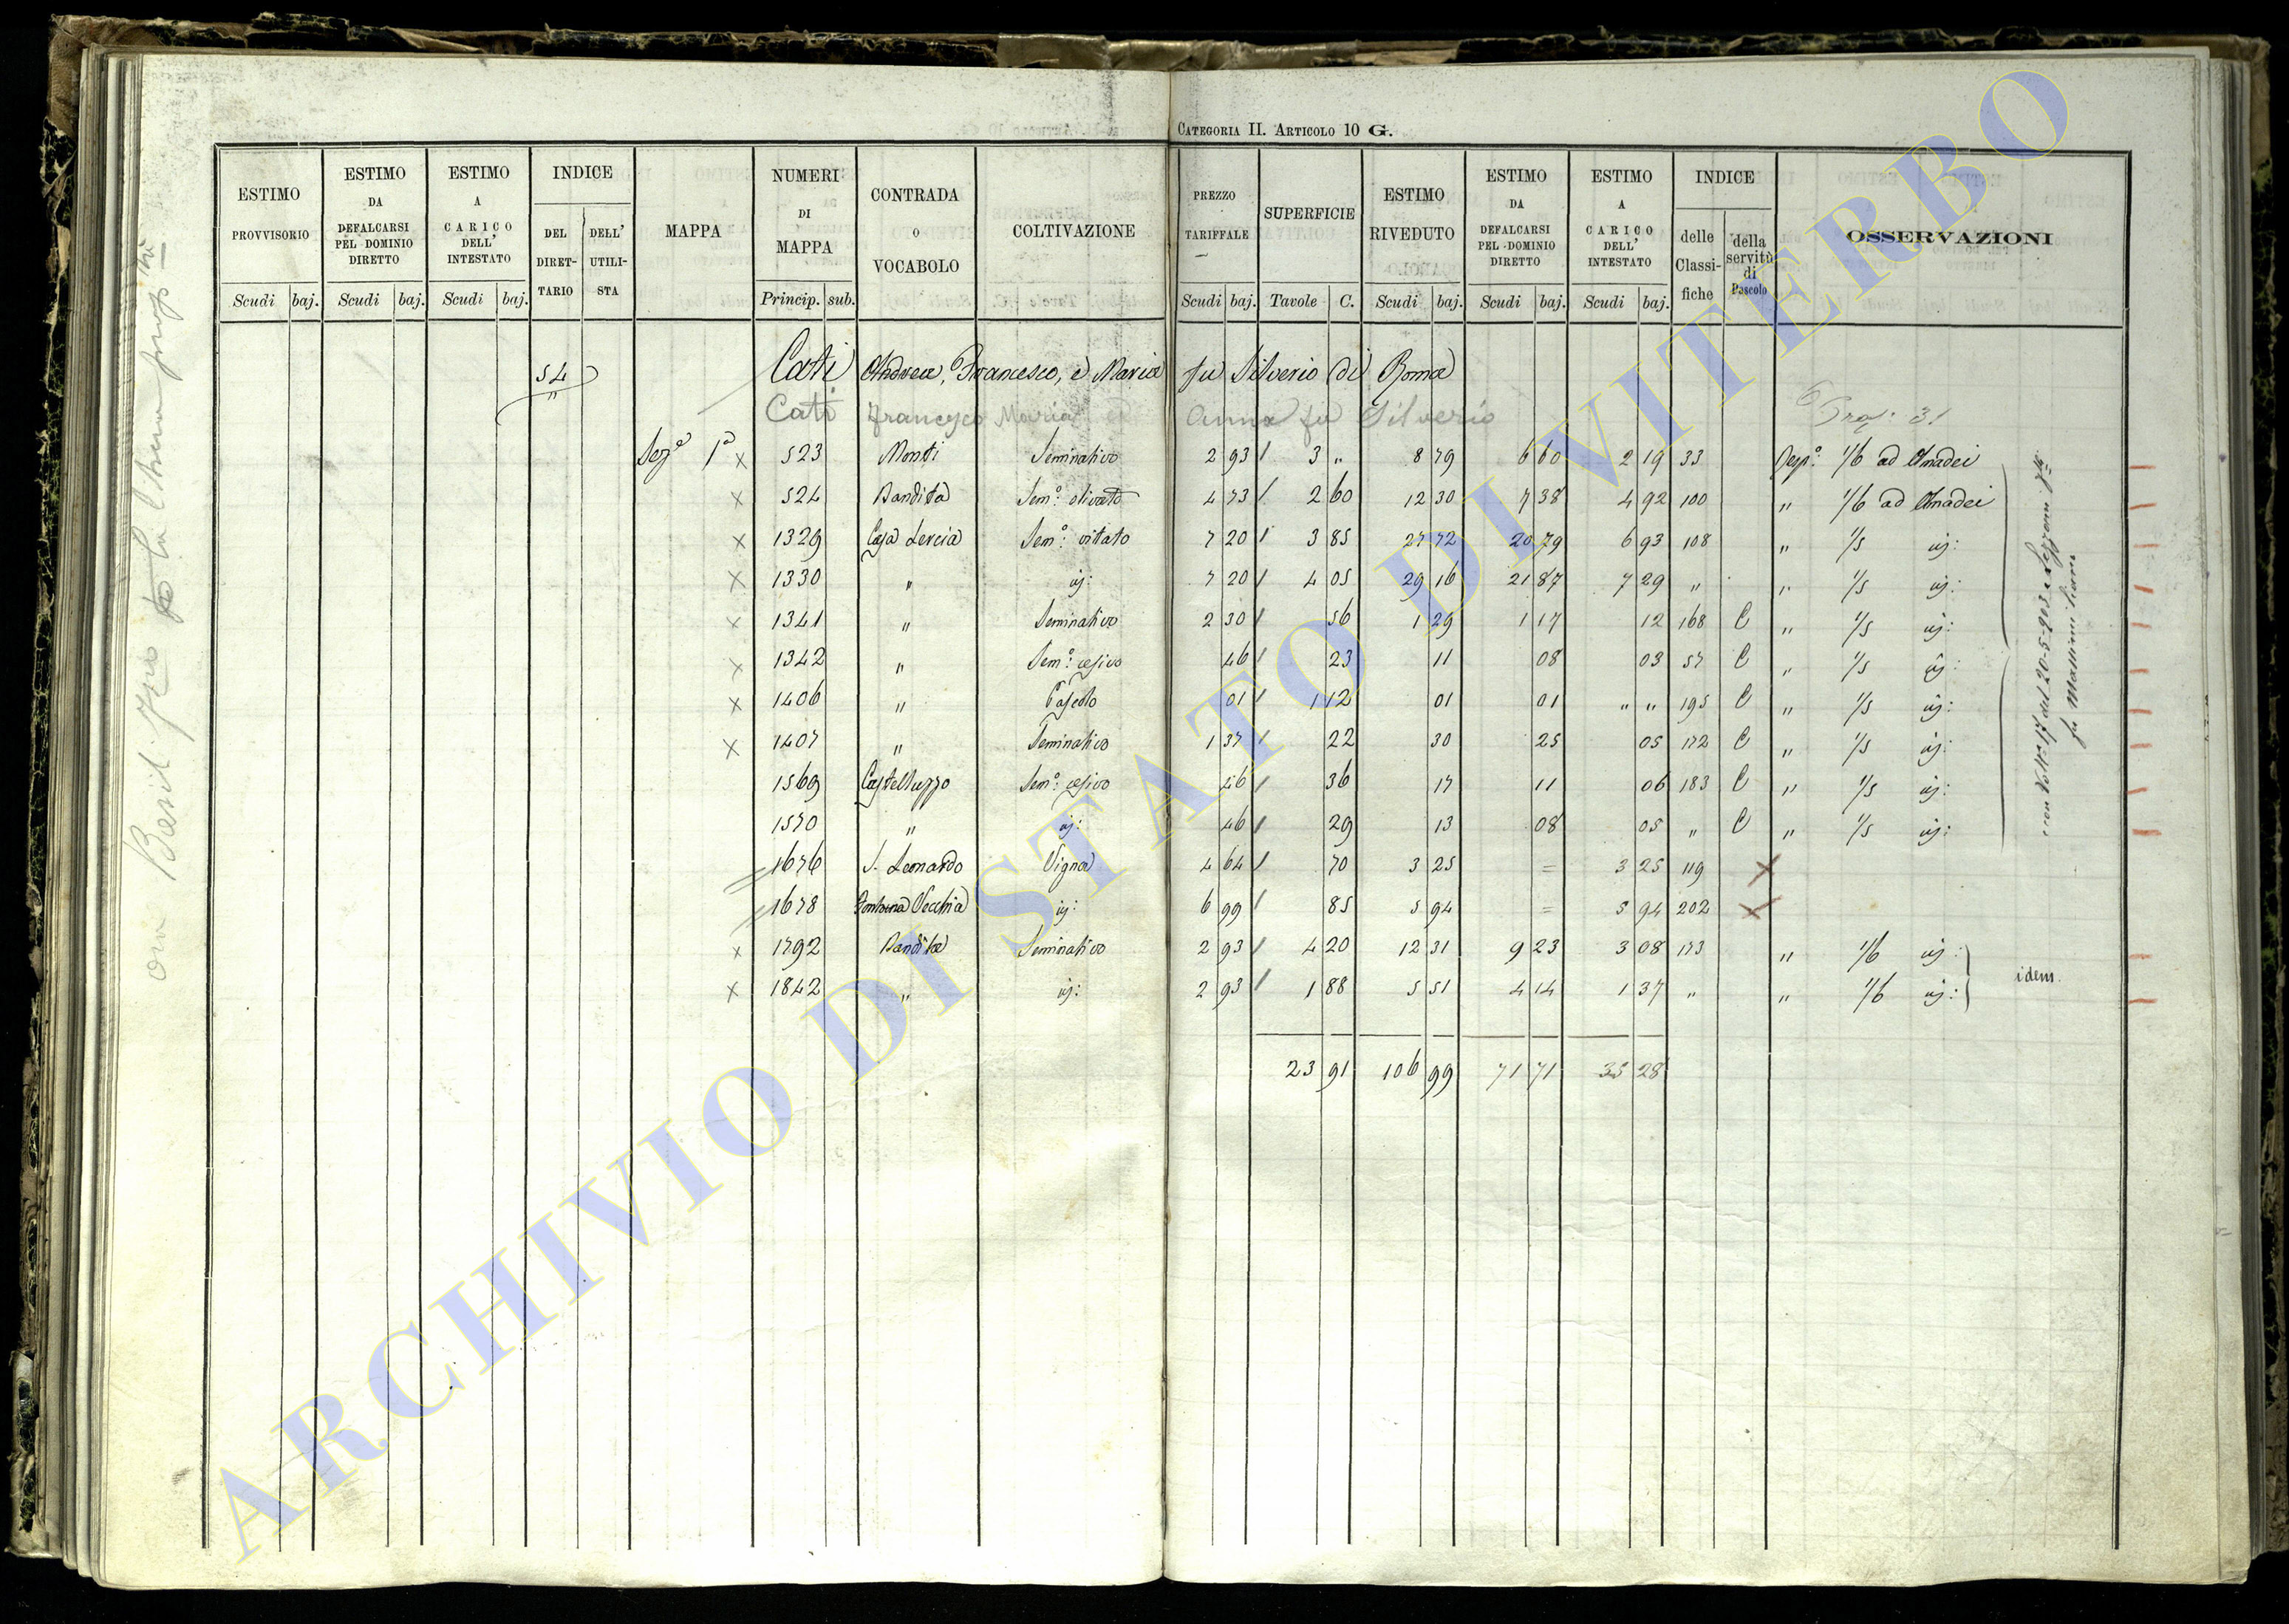 CATEGORIA II. ARTICOLO 10 G.
ESTIMO PROVVISORIO Scudi baj.
ESTIMO DA DEFALCARSI PEL DOMINIO DIRETTO Scudi baj.
ESTIMO A CARICO DELL' INTESTATO Scudi baj.
INDICE DEL DIRET-TARIO DELL' UTILI-STA
MAPPA
NUMERI DI MAPPA Princip. sub.
CONTRADA O VOCABOLO
COLTIVAZIONE
PREZZO TARIFFALE Scudi baj.
SUPERFICIE Tavole C.
ESTIMO RIVEDUTO Scudi baj.
ESTIMO DA DEFALCARSI PEL DOMINIO DIRETTO Scudi baj.
ESTIMO A CARICO DELL' INTESTATO Scudi baj.
INDICE delle Classi-fiche della servitù di Pascolo
OSSERVAZIONI
54 Cati Andrea, Francesco, e Maria fu Silverio di Roma
" Cati Francesco Maria ed Anna fu Silverio
31
Sez.e 1a x 523 Monti Seminativo 2 93 3 " 8 79 6 60 2 19 33 Resp.e 1/6 ad Amadei
x 524 Bandita Sem.o olivato 4 73 2 60 12 30 7 38 4 92 100 " 1/6 ad Amadei
x 1329 Casa Lercia Sem.o vitato 7 20 3 85 27 72 20 79 6 93 108 " 1/5 id:
x 1330 " id: 7 20 4 05 29 16 21 87 7 29 " " 1/5 id:
x 1341 " Seminativo 2 30 56 1 29 1 17 12 168 C " 1/5 id:
x 1342 " Sem.o cesivo 46 23 11 08 03 57 C " 1/5 id:
x 1406 " Pascolo 01 1 12 01 01 " " 195 C " 1/5 id:
x 1407 " Seminativo 1 37 22 30 25 05 172 C " 1/5 id:
1569 Castelluzzo Sem.o cesivo 46 36 17 11 06 183 C " 1/5 id:
1570 " id: 46 29 13 08 05 " C " 1/5 id:
1676 S. Leonardo Vigna 4 64 70 3 25 = 3 25 119 x
1678 Fontana Vecchia id: 6 99 85 5 94 = 5 94 202 x
x 1792 Bandita Seminativo 2 93 4 20 12 31 9 23 3 08 173 " 1/6 id:
x 1842 " id: 2 93 1 88 5 51 4 14 1 37 " " 1/6 id:
idem.
23 91 106 99 71 71 35 28
con Volt.a 17 del 20-5-903 a
fu Massimiliano
ora
ARCHIVIO DI STATO DI VITERBO